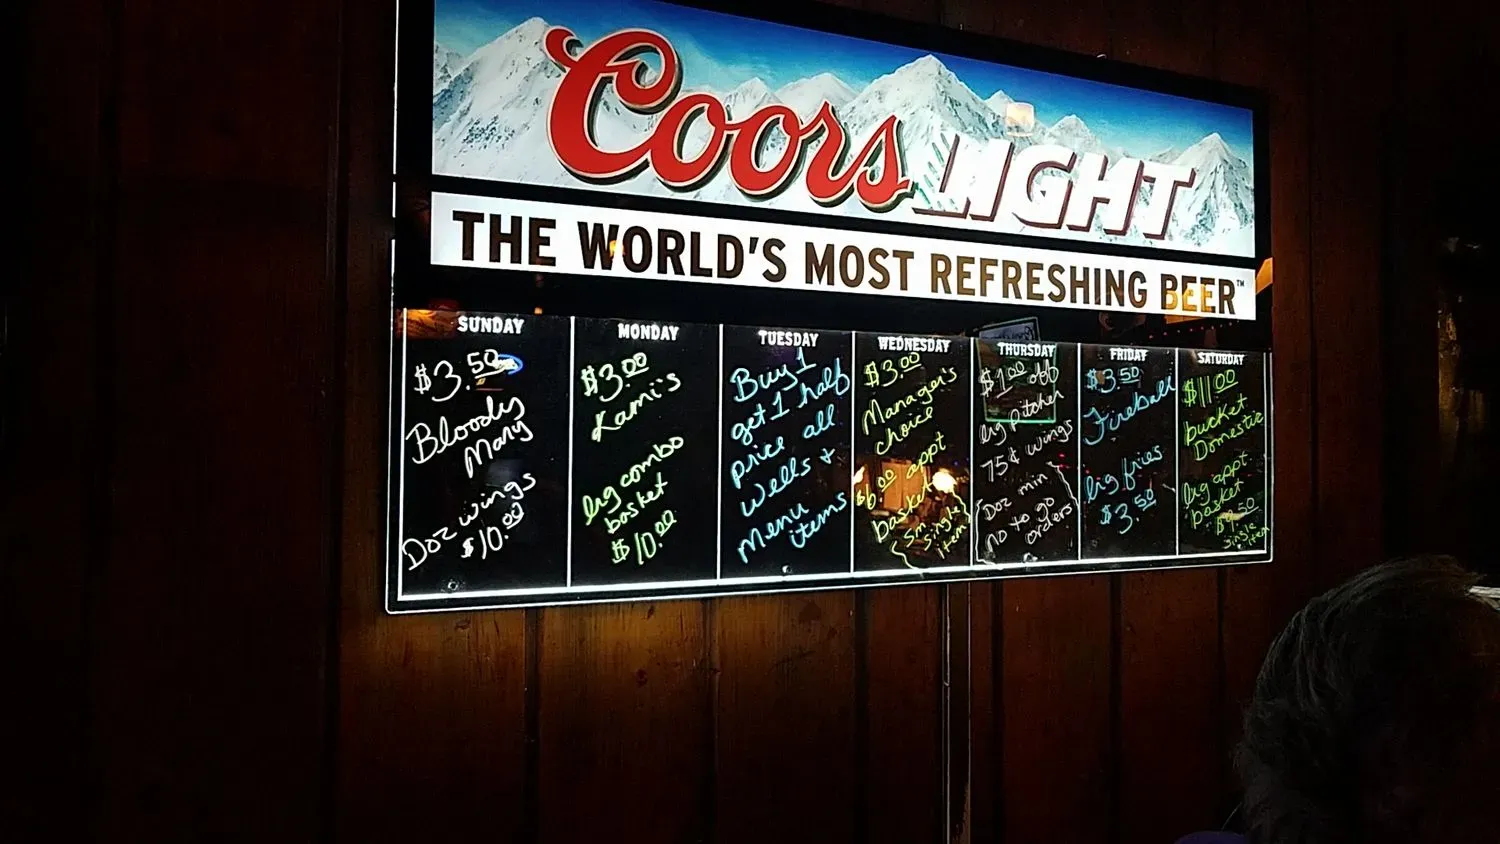 Coors LIGHT
THE WORLD'S MOST REFRESHING BEER™
SUNDAY
$3.50
Bloody
Mary
Doz wings
$10.00
MONDAY
$3.00
Kami's
lrg combo
basket
$10.00
TUESDAY
Buy 1
get 1 half
price all
wells +
menu
items
WEDNESDAY
$3.00
Manager's
choice
$6.00 appt
basket
sm
single
item
THURSDAY
$1.00 off
lrg pitcher
75¢ wings
Doz min
no to go
orders
FRIDAY
$3.50
Fireball
lrg fries
$3.50
SATURDAY
$11.00
bucket
Domestic
lrg appt.
basket
.50
single
item